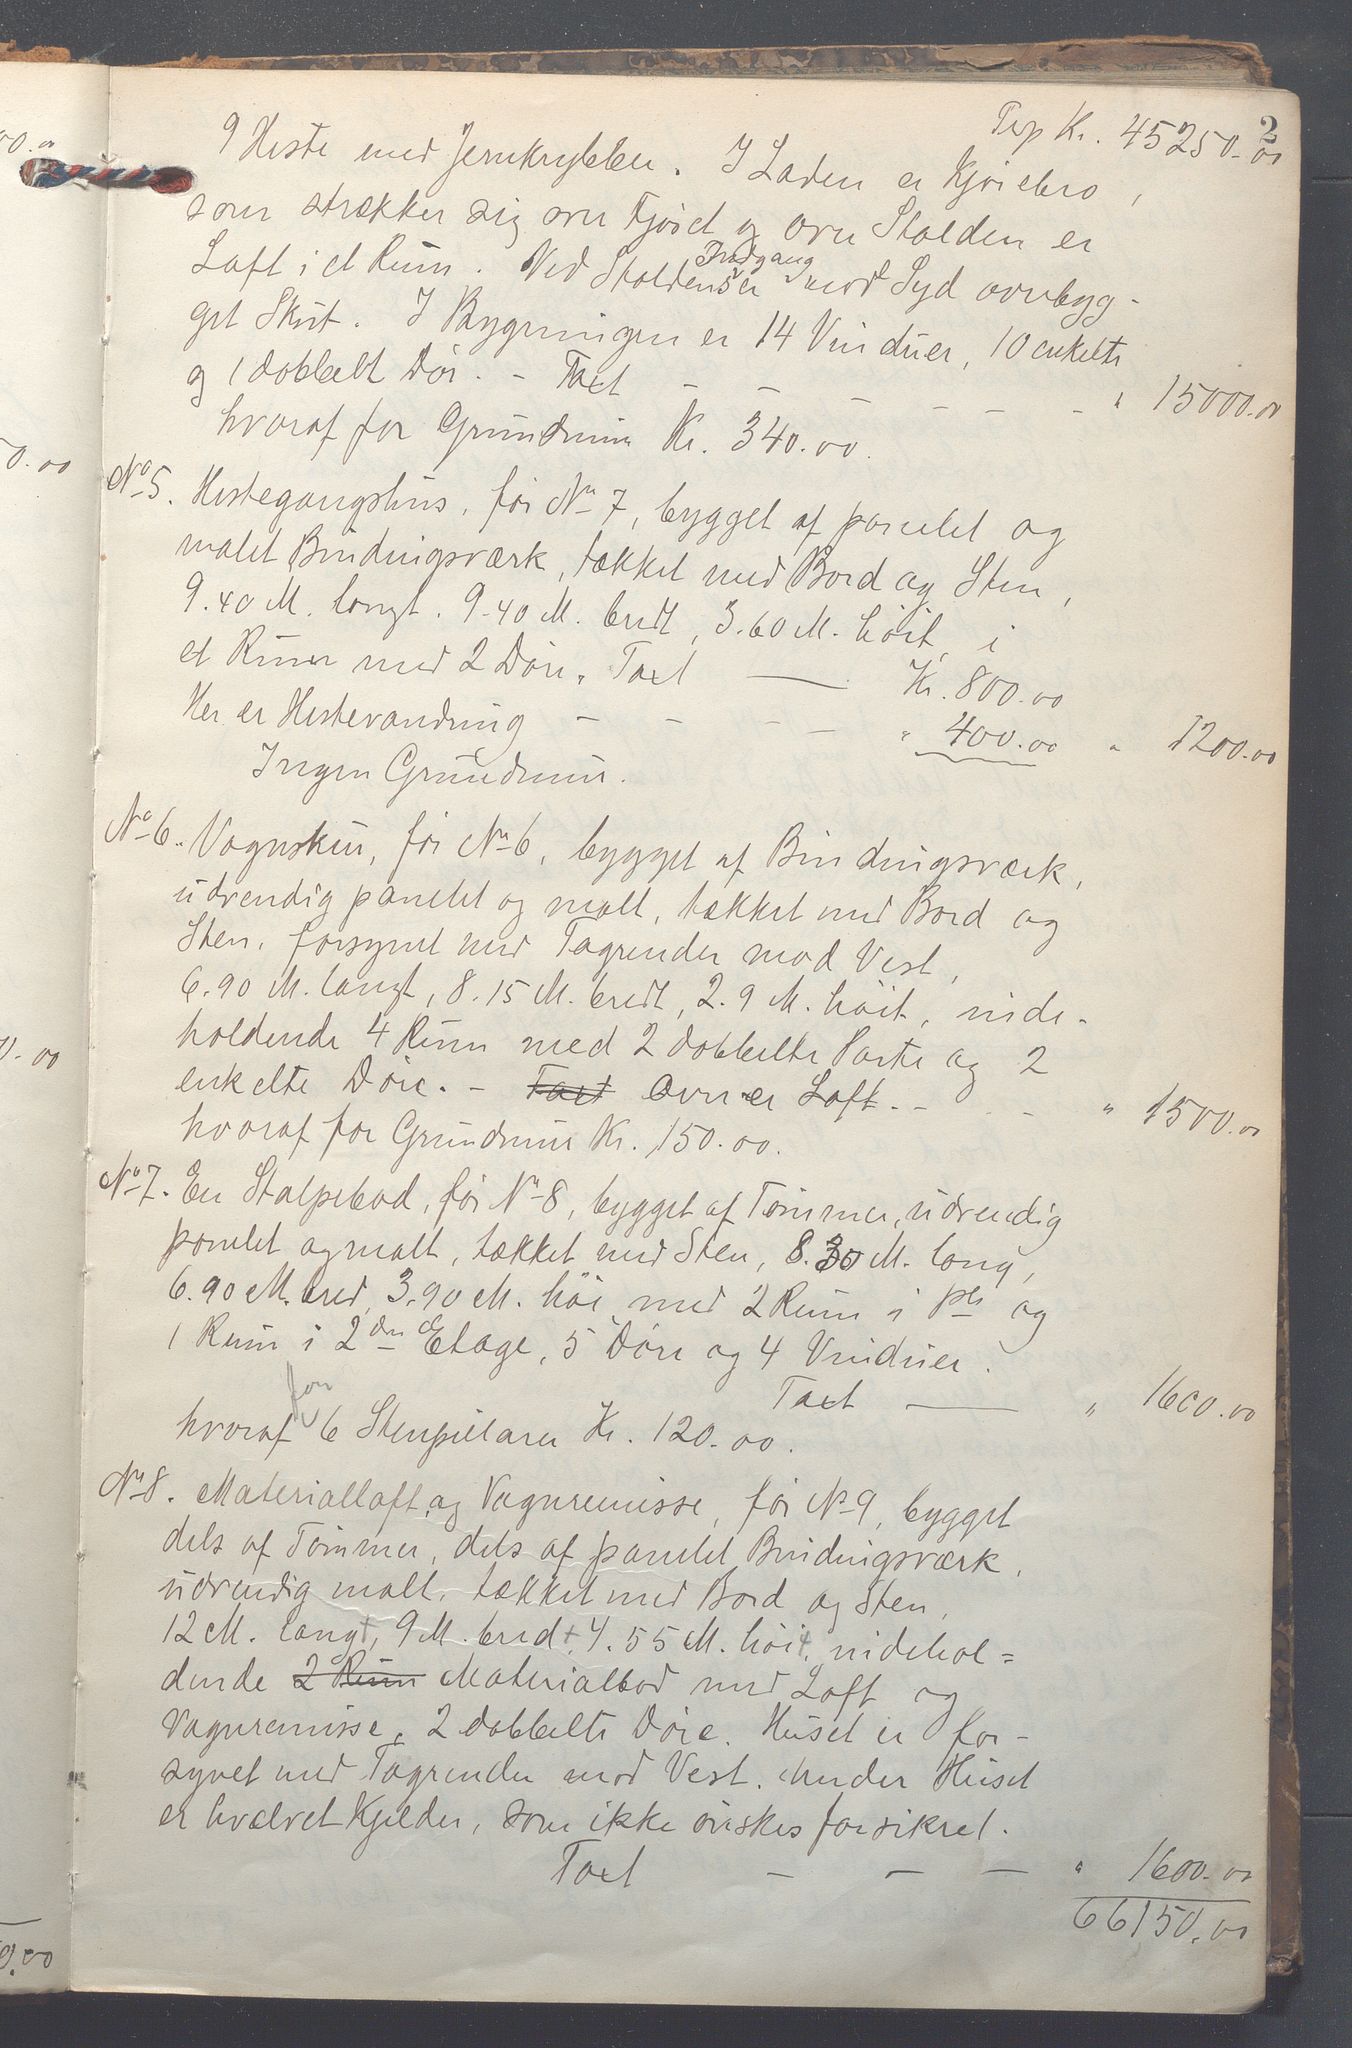 2
Trp Kr. 45250.00
9 Heste med Jernkrybber. I Laden er Kjørebro,
som strækker sig over Fjøset og over Stalden er
Loft i et Rum. Ved Staldens Indgang er mod Syd overbyg-
get Skut. I Bygningen er 14 Vinduer, 10 enkelte
og 1 dobbelt Dør. - Taxt - - - - - - " 15000.00
hvoraf for Grundmur Kr. 340.00.
No 5. Hestegangshus, før No 7, bygget af panelet og
malet Bindingsværk, tækket med Bord og Sten,
9.40 M. langt. 9.40 M. bredt, 3.60 M. höit, i
et Rum med 2 Döre. Taxt — Kr. 800.00
Her er Hestevandring - - - - " 400.00 " 1200.00
Ingen Grundmur.
No 6. Vognskur, før No 6, bygget af Bindingsværk,
udvendig panelet og malt, tækket med Bord og
Sten, forsynet med Tagrender mod Vest,
6.90 M. langt, 8.15 M. bredt, 2.9 M. höit, inde-
holdende 4 Rum med 2 dobbelte Porte og 2
enkelte Döre. - Taxt Over er Loft. - - - " 1500.00
hvoraf for Grundmur Kr. 150.00.
No 7. En Stolpebod, før No 8, bygget af Tømmer, udvendig
panelet og malt, tækket med Sten, 8.30 M. lang,
6.90 M. bred, 3.90 M. höi med 2 Rum i ple og
1 Rum i 2den Etage, 5 Döre og 4 Vinduer.
Taxt — " 1600.00
hvoraf for 6 Stenpillarer Kr. 120.00.
No 8. Materialloft og Vognremisse, før No 9, bygget
dels af Tømmer, dels af panelet Bindingsværk,
udvendig malt, tækket med Bord og Sten,
12 M. langt, 9 M. bredt, 4.55 M. höit, indehol=
dende 2 Rum Materialbod med Loft og
Vognremisse, 2 dobbelte Döre. Huset er for-
synet med Tagrender mod Vest. Under Huset
er hvælvet Kjelder, som ikke ønskes forsikret.
Taxt - - - " 1600.00
66150.00